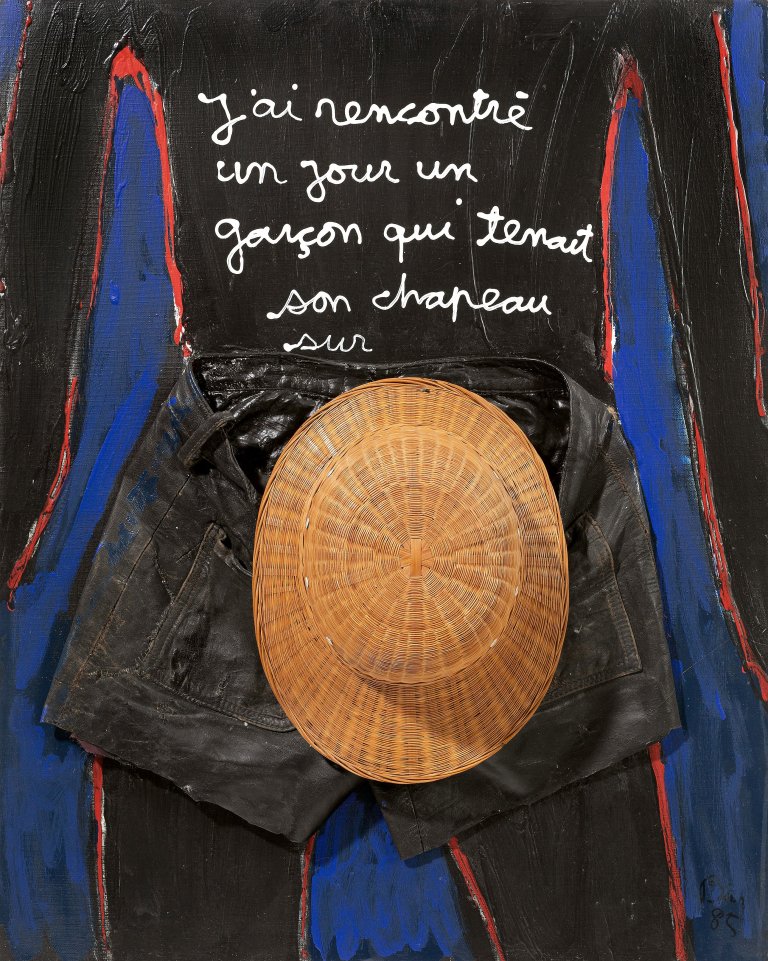 J'ai rencontré
un jour un
garçon qui tenait
son chapeau
sur
Ben
85